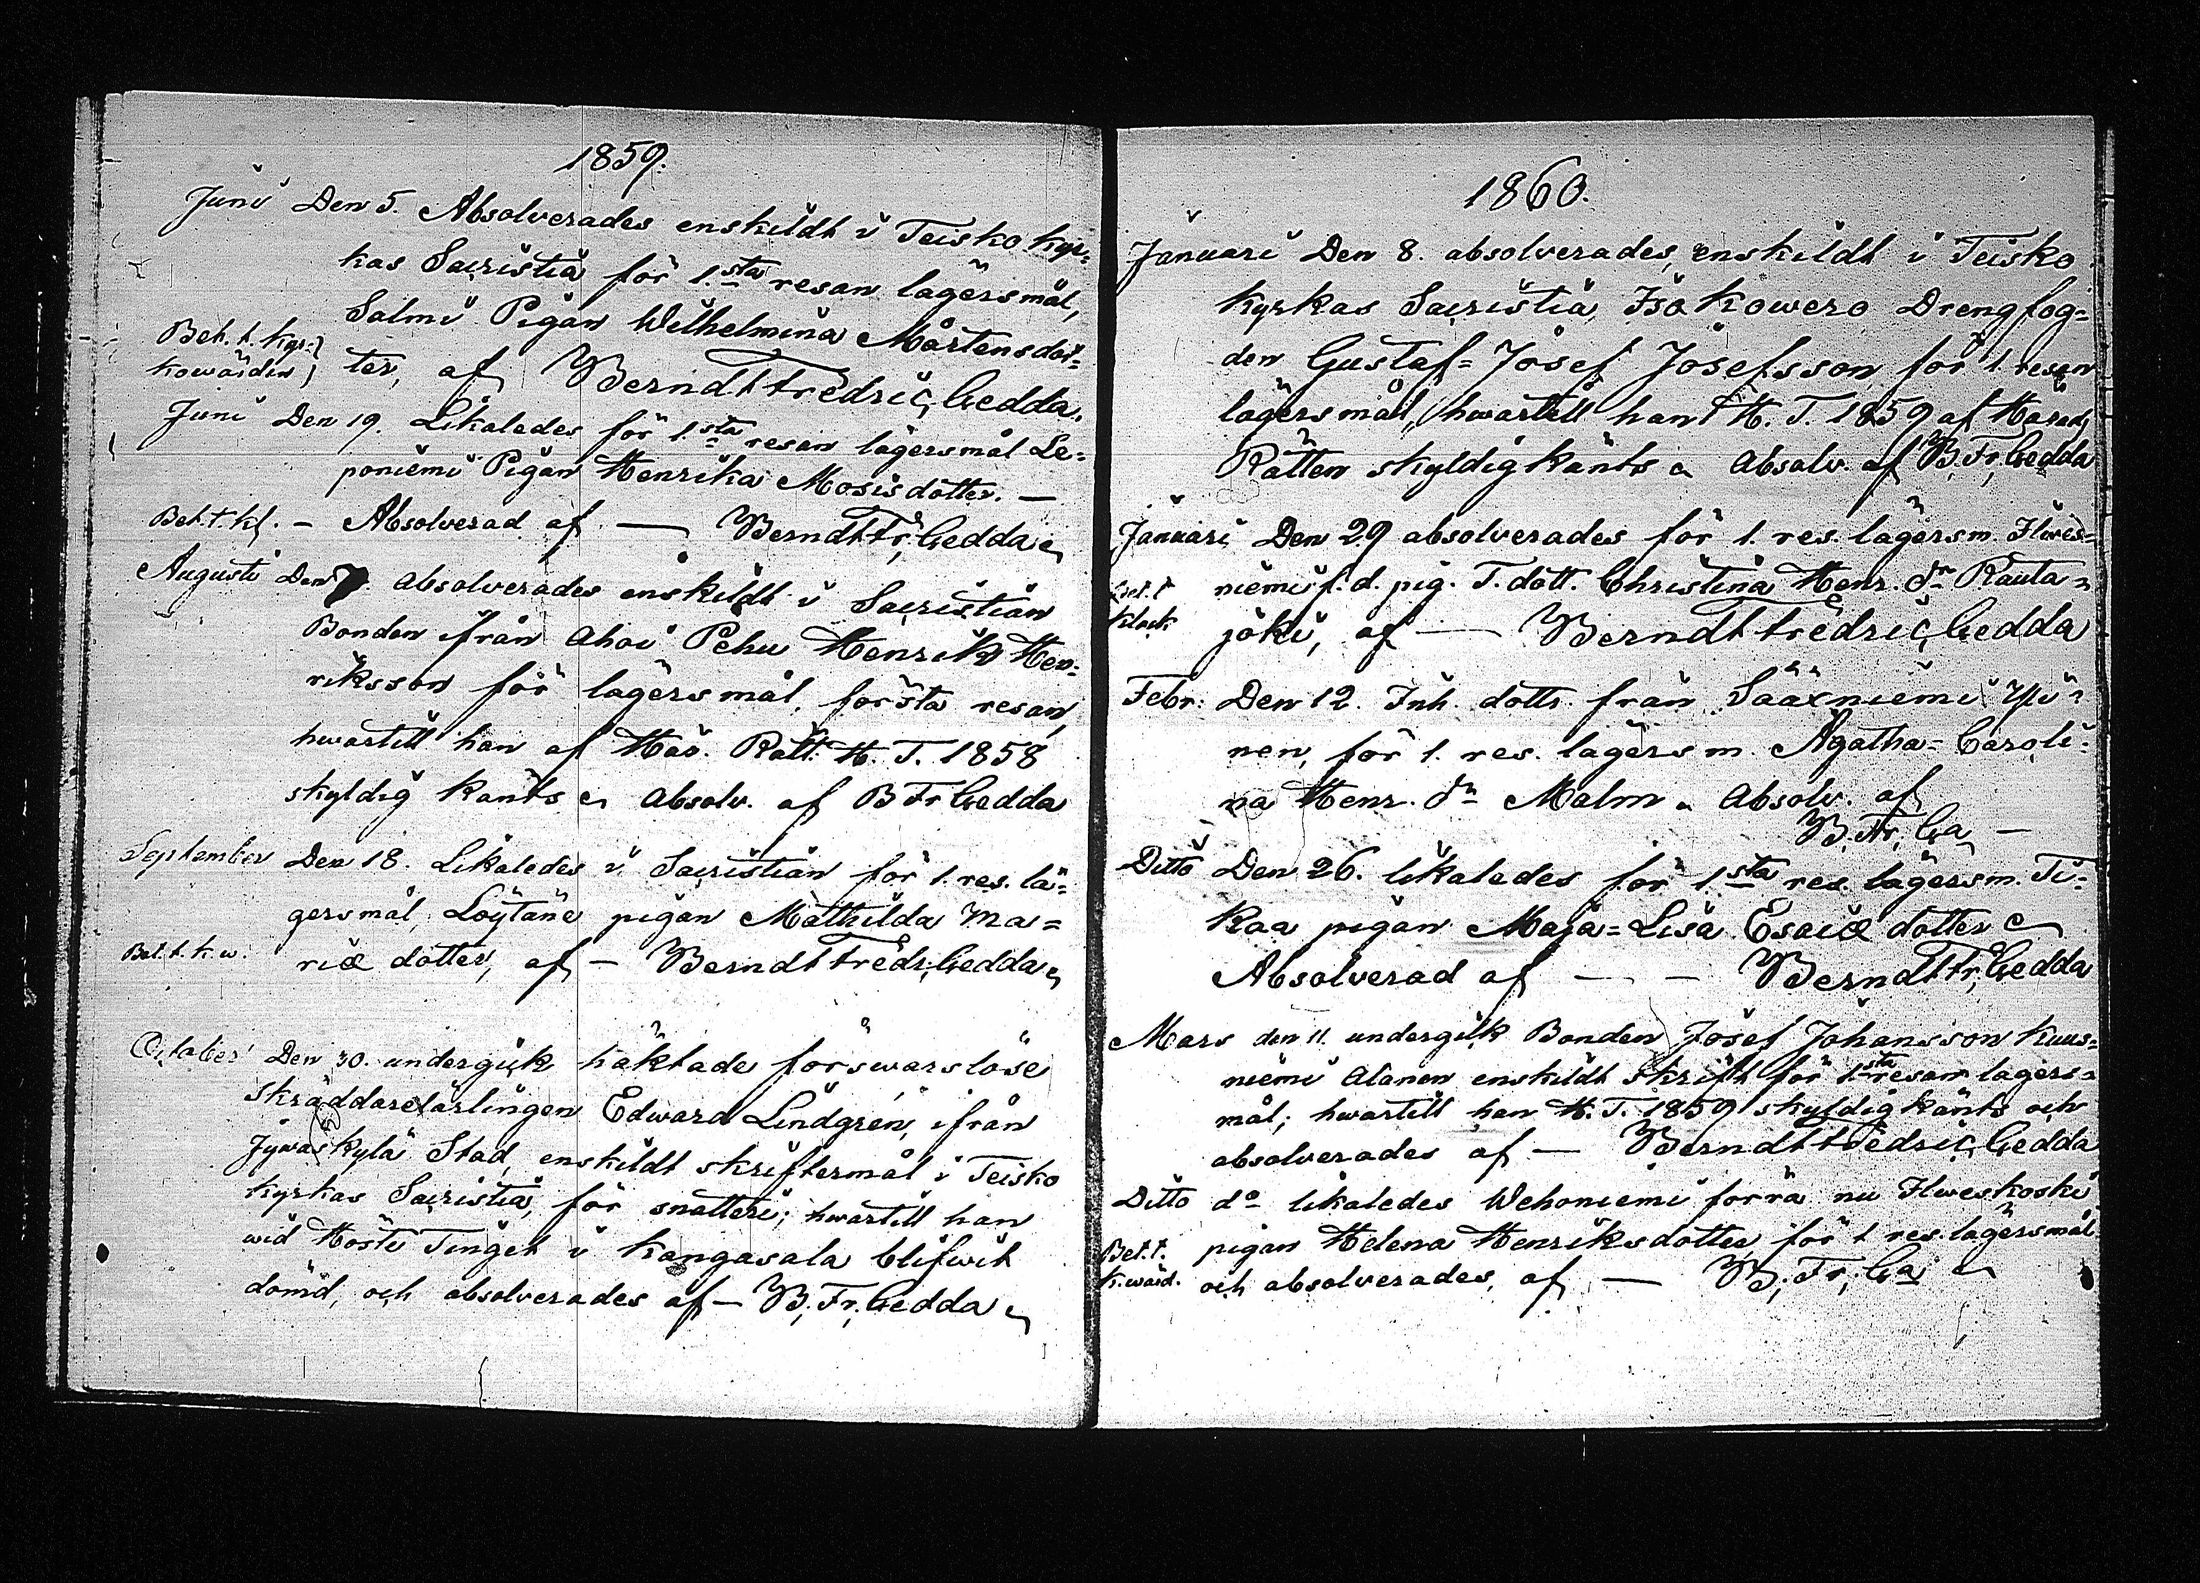 1859.
Juni Den 5. Absolverades enskildt i Teisko kyr-
kas Sacristia för 1.sta resan lägersmål,
Salmi Pigan Wilhelmina Mårtensdot-
Bet. t. kyr-
kowärden) ter, af Berndt Fredric Gedda.
Juni Den 19. Likaledes för 1.sta resan lägersmål Le-
poniemi Pigan Henrika Mosisdotter. —
Bet. t. kl. - Absolverad af — Berndt Fr, Gedda
Augusti Den 7. absolverades enskildt i Sacristian
Bonden ifrån Ahoi Pehu Henrik Hen-
riksson för lägersmål, första resan,
hwartill han af Här. Rätt. H. T. 1858
skyldig känts absolv. af B Fr Gedda
September Den 18. Likaledes i Sacristian för 1. res. lä-
gersmål, Löytäne pigan Mathilda Ma-
Bet. t. k. w. riæ dotter, af — Berndt Fredr, Gedda
October Den 30. undergick häktade förswarslöse
Skräddarelärlingen Edward Lindgrén, ifrån
Jywäskylä Stad, enskildt skriftermål i Teisko
kyrkas Sacristia, för snatteri; hwartill han
wid Höste Tinget i Kangasala blifwit
dömd, och absolverades af — B. Fr, Gedda
1860.
Januari Den 8. absolverades, enskildt i Teisko
kyrkas Sacristia, Isokowero Drengfog-
den Gustaf-Josef Josefsson för 1. resan
lägersmål, hwartill han H. T. 1859 af Härads
Rätten skyldig känts Absolv. af B. Fr, Gedda
Januari Den 29 absolverades för 1. res. lägersm. Ilwes-
Bet. t. niemi f. d. pig. T. dott. Christina Henr. dr Rauta-
klock joki, af — Berndt Fredric Gedda
Febr. Den 12. Inh. dottr från Sääxniemi Yli-
nen, för 1. res. lägersm. Agatha-Caroli-
na Henr. dr Malm Absolv. af
B. Fr, Ga —
Ditto Den 26. likaledes för 1.sta res. lägersm. Ti-
kaa pigan Maja-Lisa Esaiæ dotter
Absolverad af — — Berndt Fr, Gedda
Mars den 11. undergick Bonden Josef Johansson Kuus-
niemi Alanen enskildt skrift för 1.sta resan lägers-
mål; hwartill han H. T. 1859 skyldig känts och
absolverades af — Berndt Fedric Gedda
Ditto do likaledes Wehoniemi förra nu Ilweskoski
Bet. t. pigan Helena Henriksdotter för 1 res. lägersmål
k. wärd. och absolverades, af — B, Fr, Ga